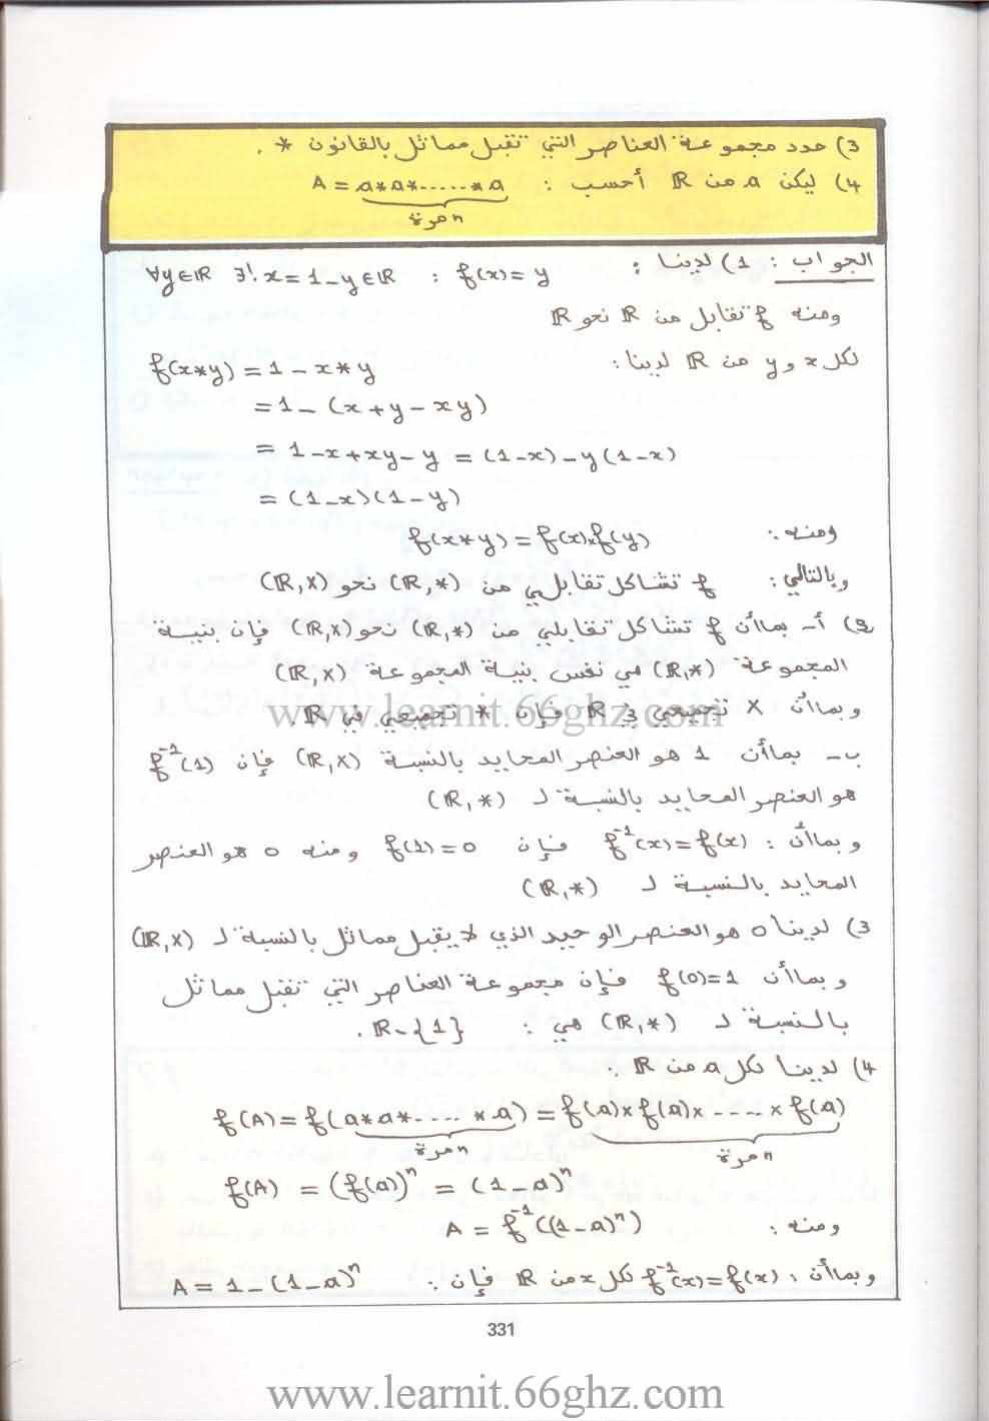 3) حدد مجموعة العناصر التي تقبل مماثل بالقانون * .
4) ليكن a من ℝ أحسب : A = a*a*.....*a
n مرة
الجواب : 1) لدينا : ∀y∈ℝ ∃! x=1-y∈ℝ : f(x)=y
ومنه f تقابل من ℝ نحو ℝ
لكل x و y من ℝ لدينا: f(x*y) = 1 - x*y
= 1 - (x+y-xy)
= 1-x+xy-y = (1-x)-y(1-x)
= (1-x)(1-y)
ومنه : f(x*y) = f(x)×f(y)
وبالتالي : f تشاكل تقابلي من (ℝ,*) نحو (ℝ,×)
2) أ- بما أن f تشاكل تقابلي من (ℝ,*) نحو (ℝ,×) فإن بنية
المجموعة (ℝ,*) هي نفس بنية المجموعة (ℝ,×)
وبما أن × تجميعي في ℝ فإن * تجميعي في ℝ
www.learnit.66ghz.com
ب- بما أن 1 هو العنصر المحايد بالنسبة (ℝ,×) فإن f⁻¹(1)
هو العنصر المحايد بالنسبة لـ (ℝ,*)
وبما أن : f⁻¹(x)=f(x) فإن f(1)=0 ومنه 0 هو العنصر
المحايد بالنسبة لـ (ℝ,*)
3) لدينا 0 هو العنصر الوحيد الذي لا يقبل مماثل بالنسبة لـ (ℝ,×)
وبما أن f(0)=1 فإن مجموعة العناصر التي تقبل مماثل
بالنسبة لـ (ℝ,*) هي : ℝ-{1} .
4) لدينا لكل a من ℝ :
f(A) = f(a*a*.....*a) = f(a)×f(a)×....×f(a)
n مرة n مرة
f(A) = (f(a))ⁿ = (1-a)ⁿ
ومنه : A = f⁻¹((1-a)ⁿ)
وبما أن : f⁻¹(x)=f(x) لكل x من ℝ فإن : A = 1-(1-a)ⁿ
331
www.learnit.66ghz.com